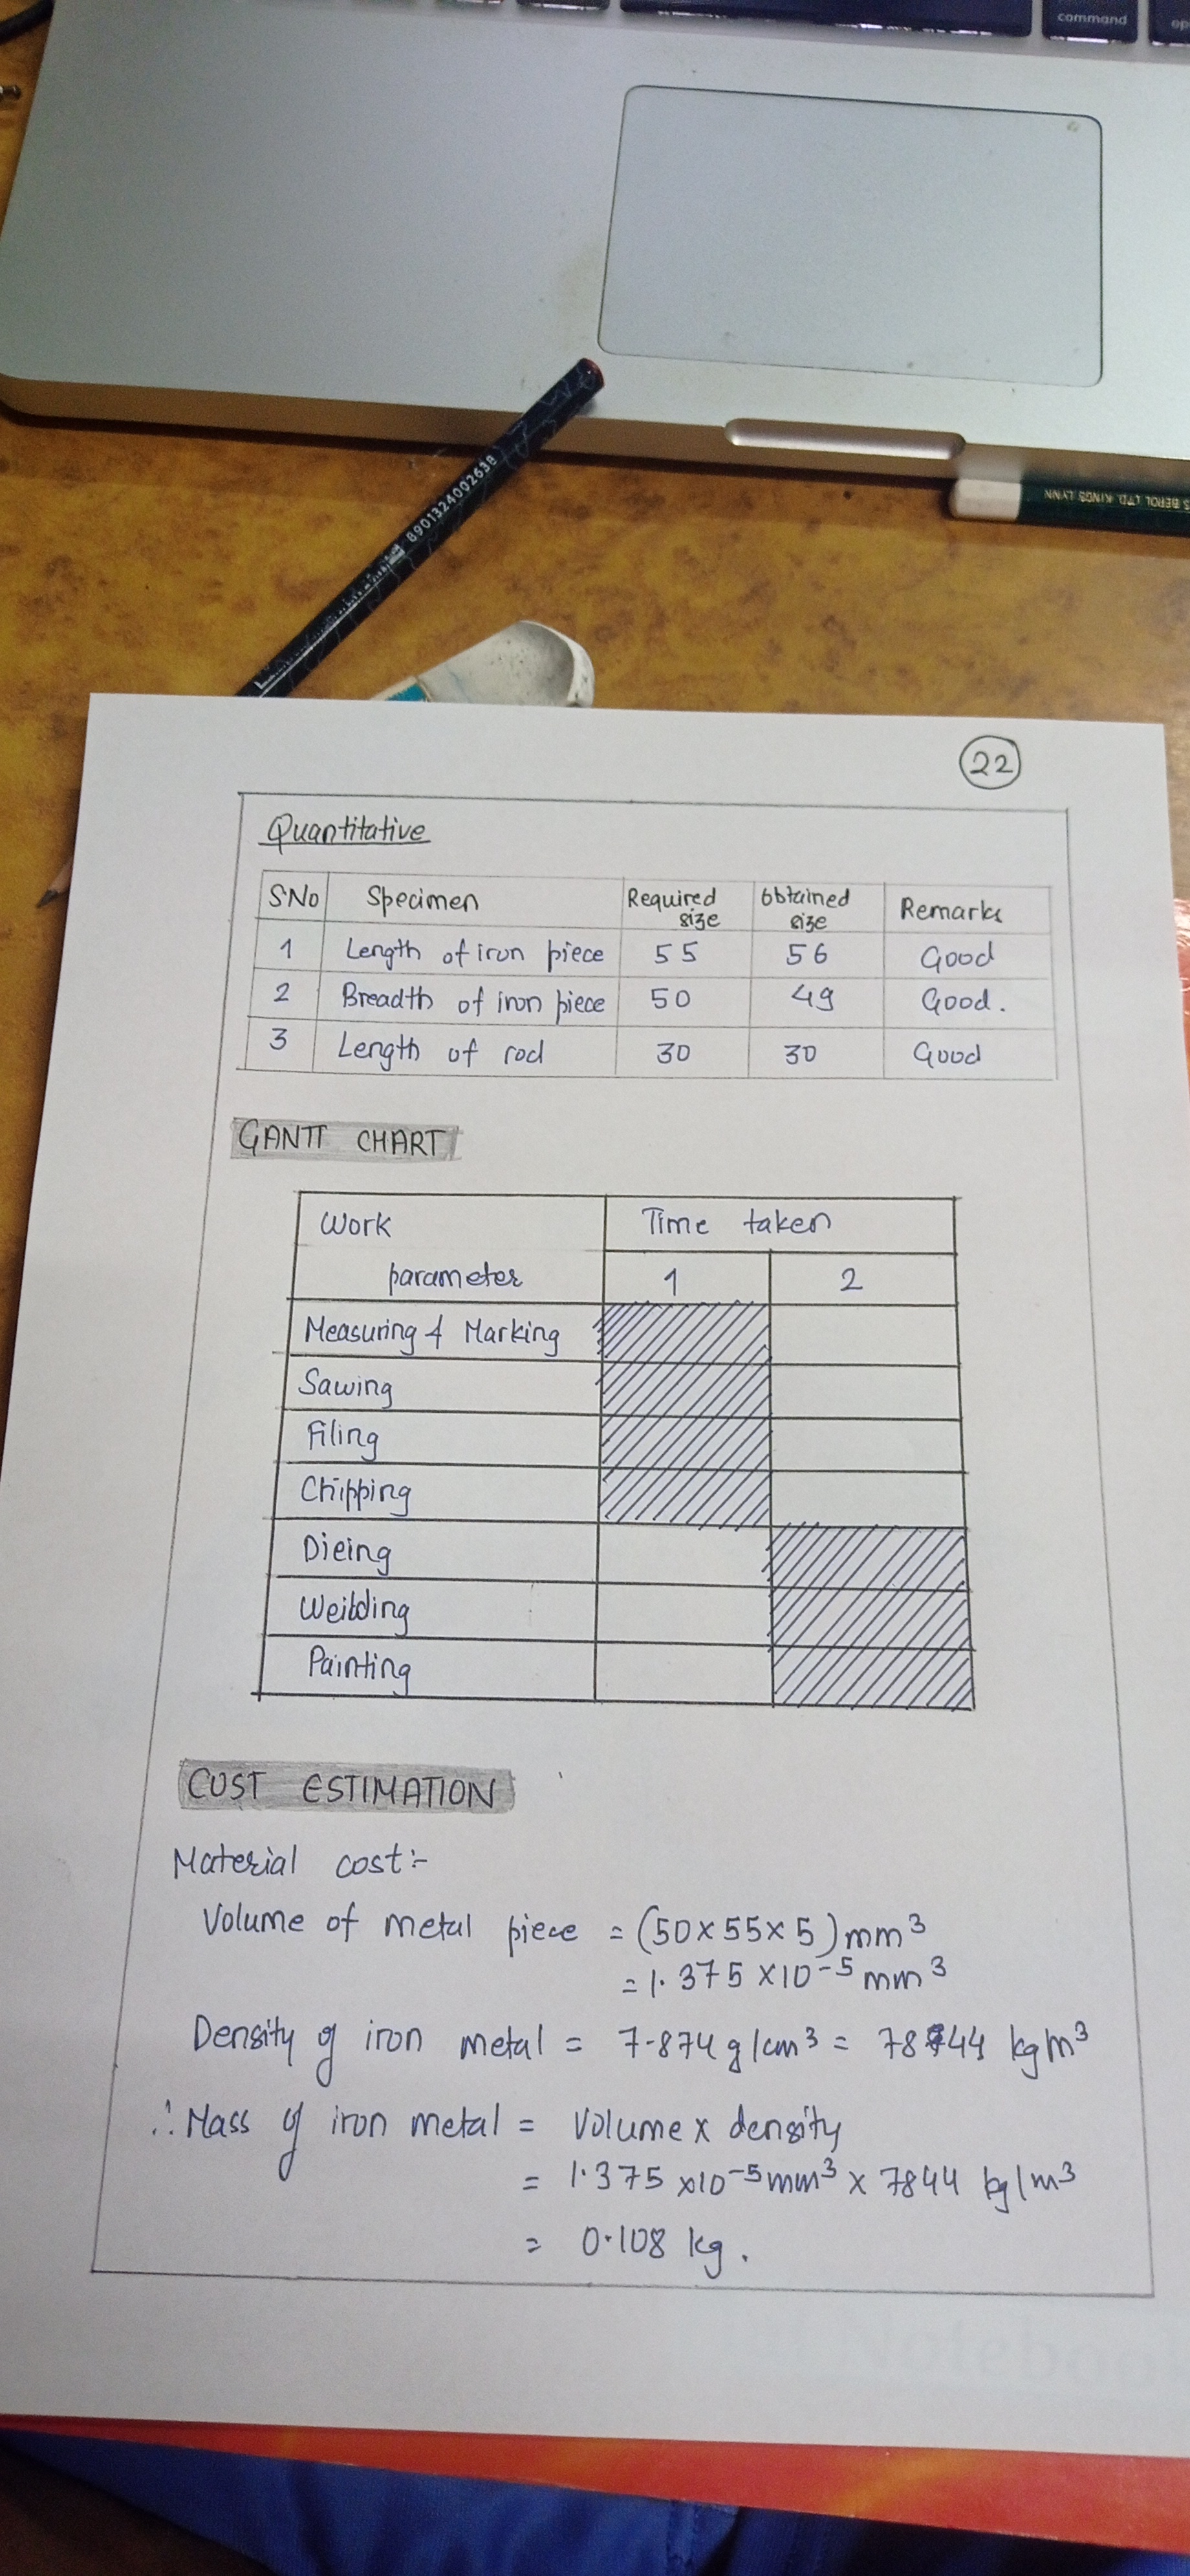 command
8901324002638
BEROL LTD. KINGS LYNN
22
Quantitative
S.No Specimen Required size Obtained size Remarks
1 Length of iron piece 55 56 Good
2 Breadth of iron piece 50 49 Good.
3 Length of rod 30 30 Good
GANTT CHART
Work parameter Time taken
1 2
Measuring & Marking
Sawing
Filing
Chipping
Dieing
Weilding
Painting
COST ESTIMATION
Material cost:-
Volume of metal piece = (50×55×5) mm³
= 1.375 ×10⁻⁵ mm³
Density of iron metal = 7.874 g/cm³ = 7844 kg m³
∴ Mass of iron metal = Volume x density
= 1.375 ×10⁻⁵ mm³ × 7844 kg/m³
= 0.108 kg.